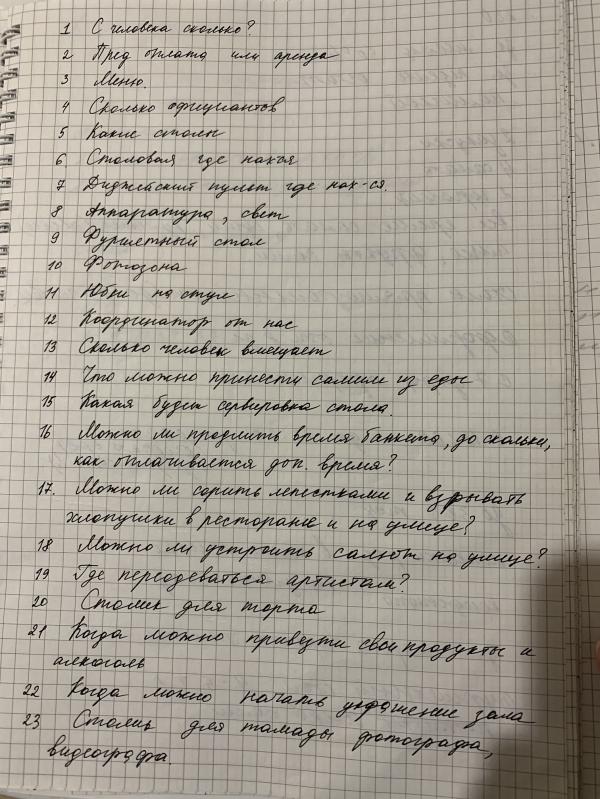 1 С человека сколько?
2 Пред оплата или аренда
3 Меню.
4 Сколько официантов
5 Какие столы
6 Столовая где нах-ся
7 Диджейский пульт где нах-ся.
8 Аппаратура, свет
9 Фуршетный стол
10 Фотозона
11 Юбки на стул
12 Координатор от нас
13 Сколько человек вмещает
14 Что можно принести самим из еды
15 Какая будет сервировка стола.
16 Можно ли продлить время банкета, до скольки,
как оплачивается доп. время?
17. Можно ли сорить лепестками и взрывать
хлопушки в ресторане и на улице?
18 Можно ли устроить салют на улице?
19 Где переодеваться артистам?
20 Столик для торта
21 Когда можно привезти свои продукты и
алкоголь
22 Когда можно начать украшение зала
23 Столик для тамады фотографа,
видеографа.